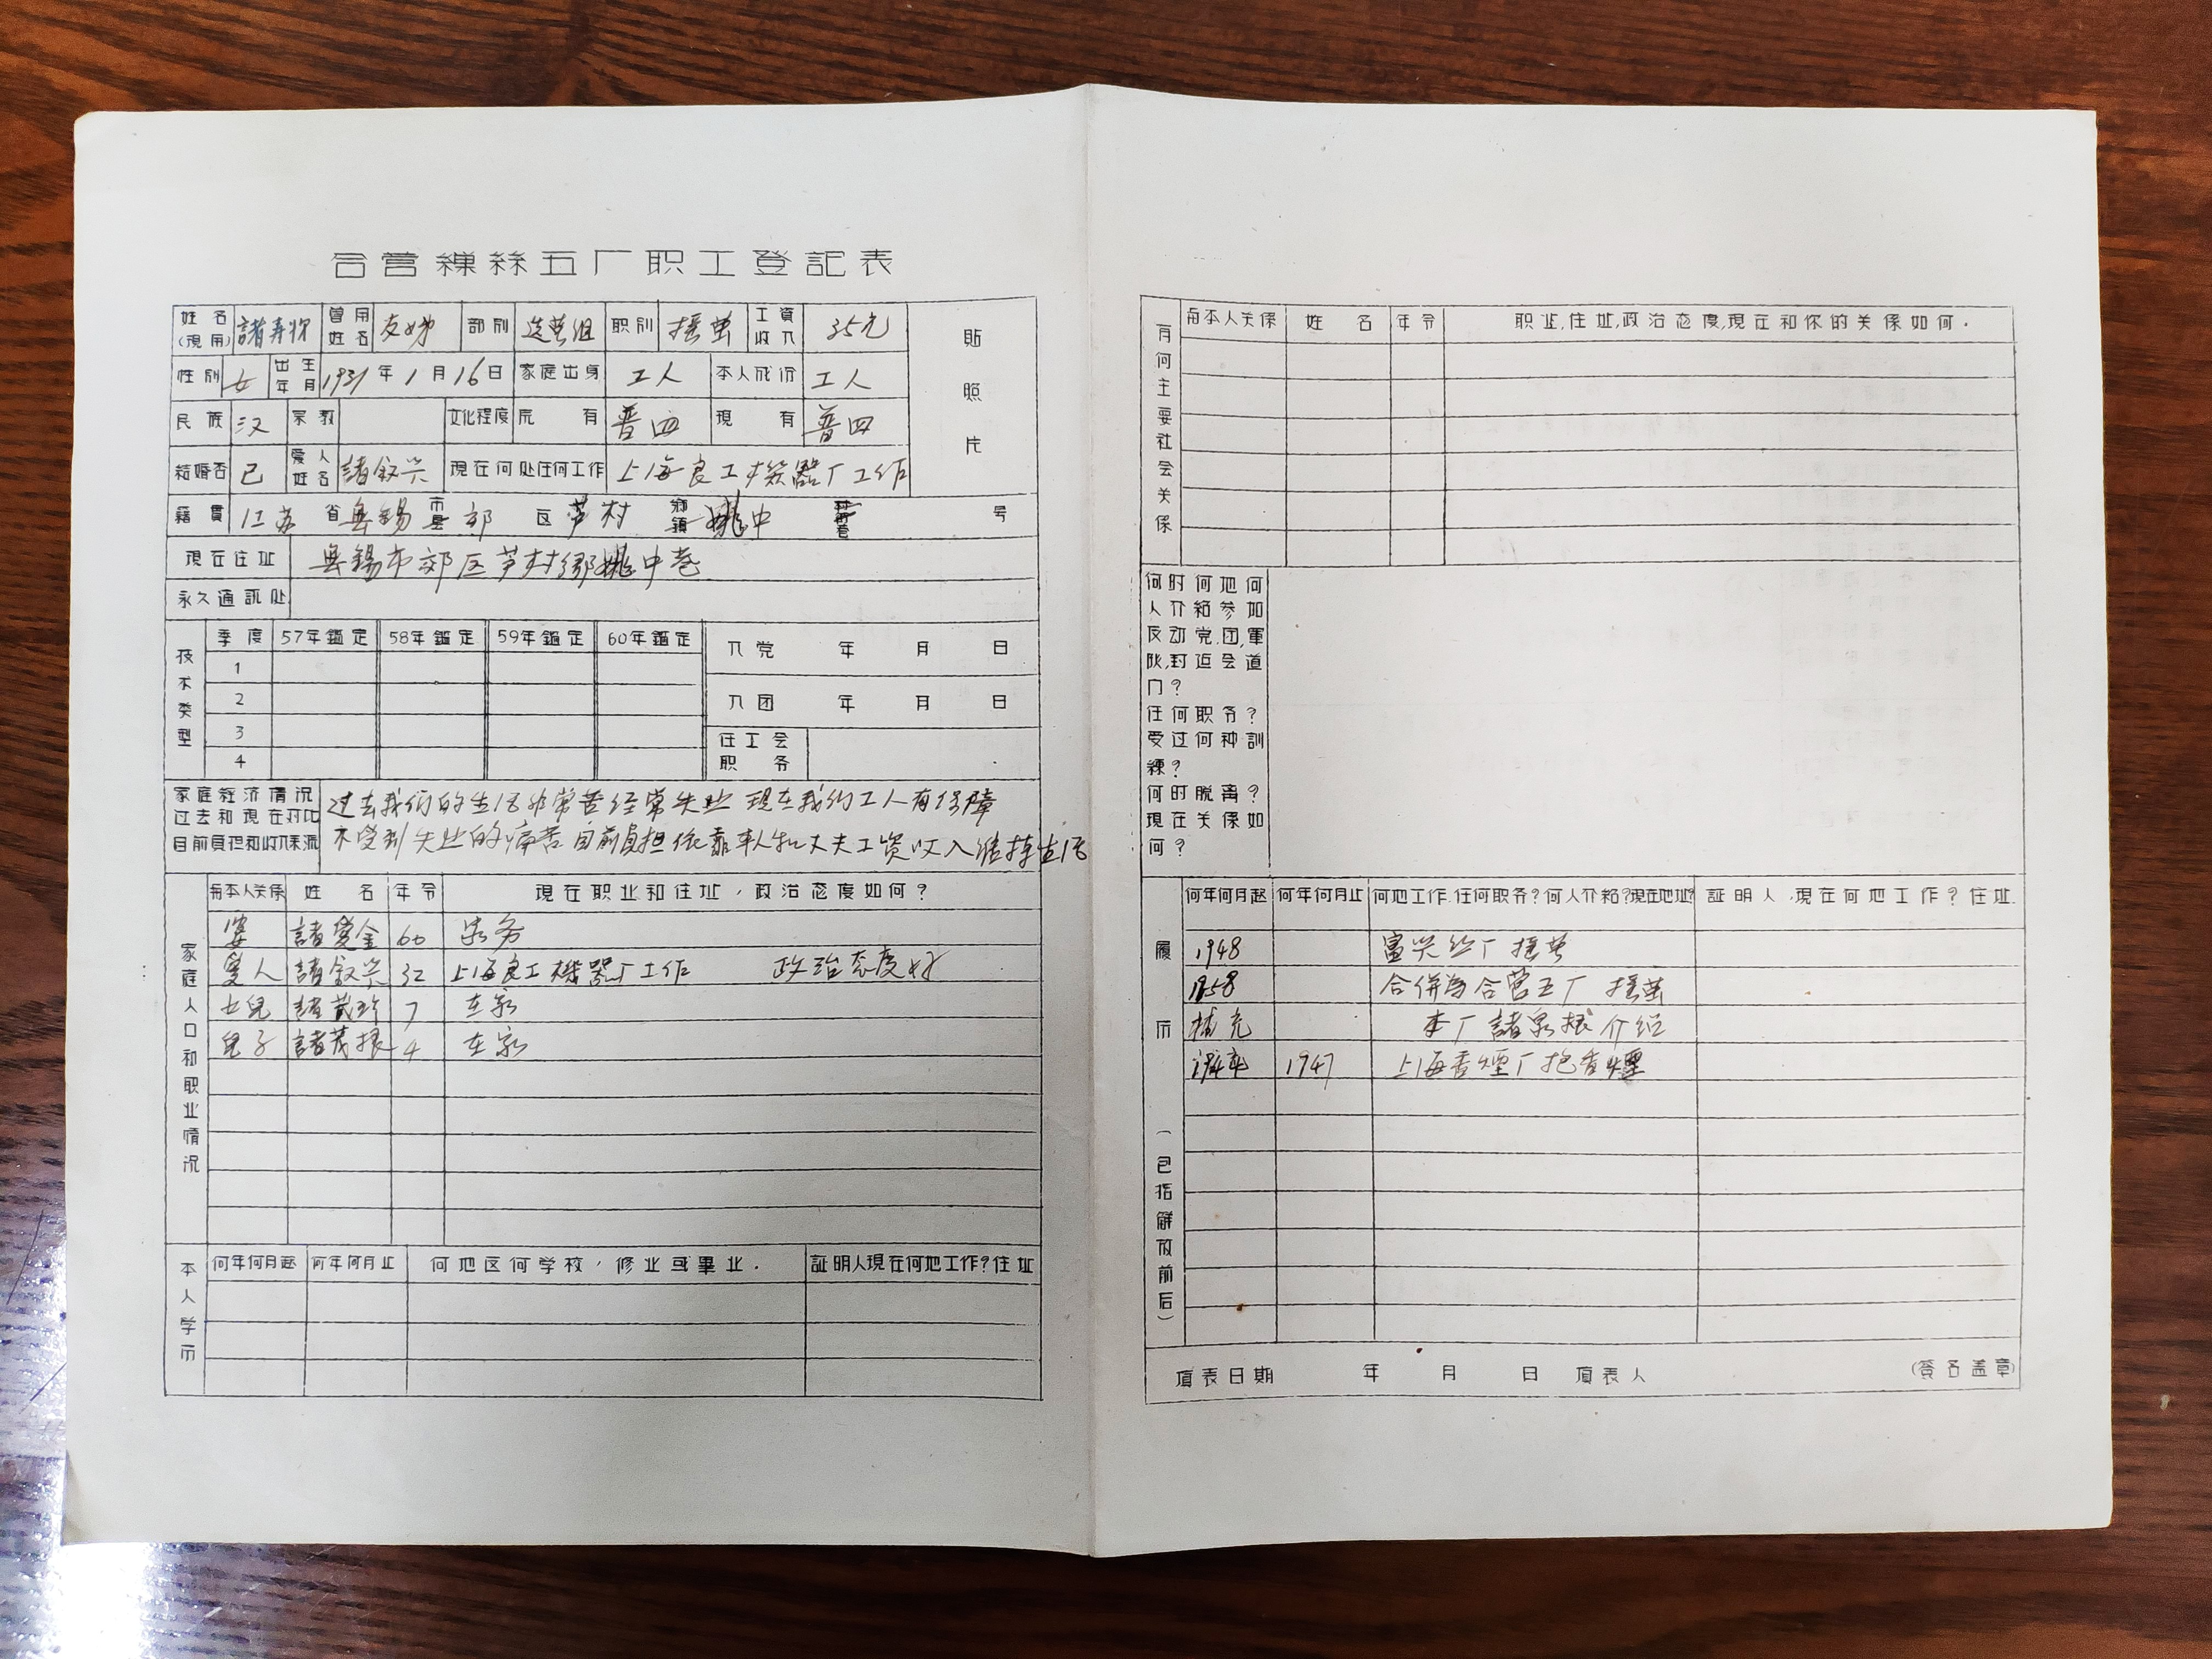 合营繅絲五厂职工登記表
姓名(現用) 諸寿妳 曾用姓名 友妹 部别 选茧组 职别 摇茧 工資收入 35元
貼照片
性别 女 出生年月 1931年1月16日 家庭出身 工人 本人成份 工人
民族 汉 宗教 文化程度 原有 普四 現有 普四
結婚否 已 爱人姓名 諸叙兴 現在何处任何工作 上海良工機器厂工作
籍貫 江苏省無锡市县郊区芦村鄉鎮姚中 号
現在住址 無錫市郊区芦村鄉姚中巷
永久通訊处
技术类型 季度 57年鑑定 58年鑑定 59年鑑定 60年鑑定
1
2
3
4
入党 年 月 日
入团 年 月 日
任工会职务
家庭經济情况过去和現在对比目前負担和收入来源
过去我们的生活非常苦经常失业 現在我们工人有保障
不受到失业的痛苦目前負担依靠本人和丈夫工资收入维持生活
家庭人口和职业情况
与本人关係 姓名 年令 現在职业和住址,政治态度如何?
婆 諸爱金 60 家务
爱人 諸叙兴 32 上海良工機器厂工作 政治态度好
女兒 諸 7 在家
兒子 諸茂根 4 在家
本人学历
何年何月起 何年何月止 何地区何学校,修业或畢业. 証明人現在何地工作?住址
有何主要社会关係
与本人关係 姓名 年令 职业,住址,政治态度,現在和你的关係如何.
何时何地何
人介紹参加
反动党.团,軍
队,封迠会道
门?
任何职务?
受过何种訓
練?
何时脱离?
現在关係如
何?
履历(包括解放前后)
何年何月起 何年何月止 何地工作.任何职务?何人介紹?現在地址? 証明人,現在何地工作?住址.
1948 富兴丝厂摇茧
1958 合併為合营五厂 摇茧
補充 本厂諸泉根介绍
1947 上海香煙厂包香煙
填表日期 年 月 日 填表人 (簽名盖章)